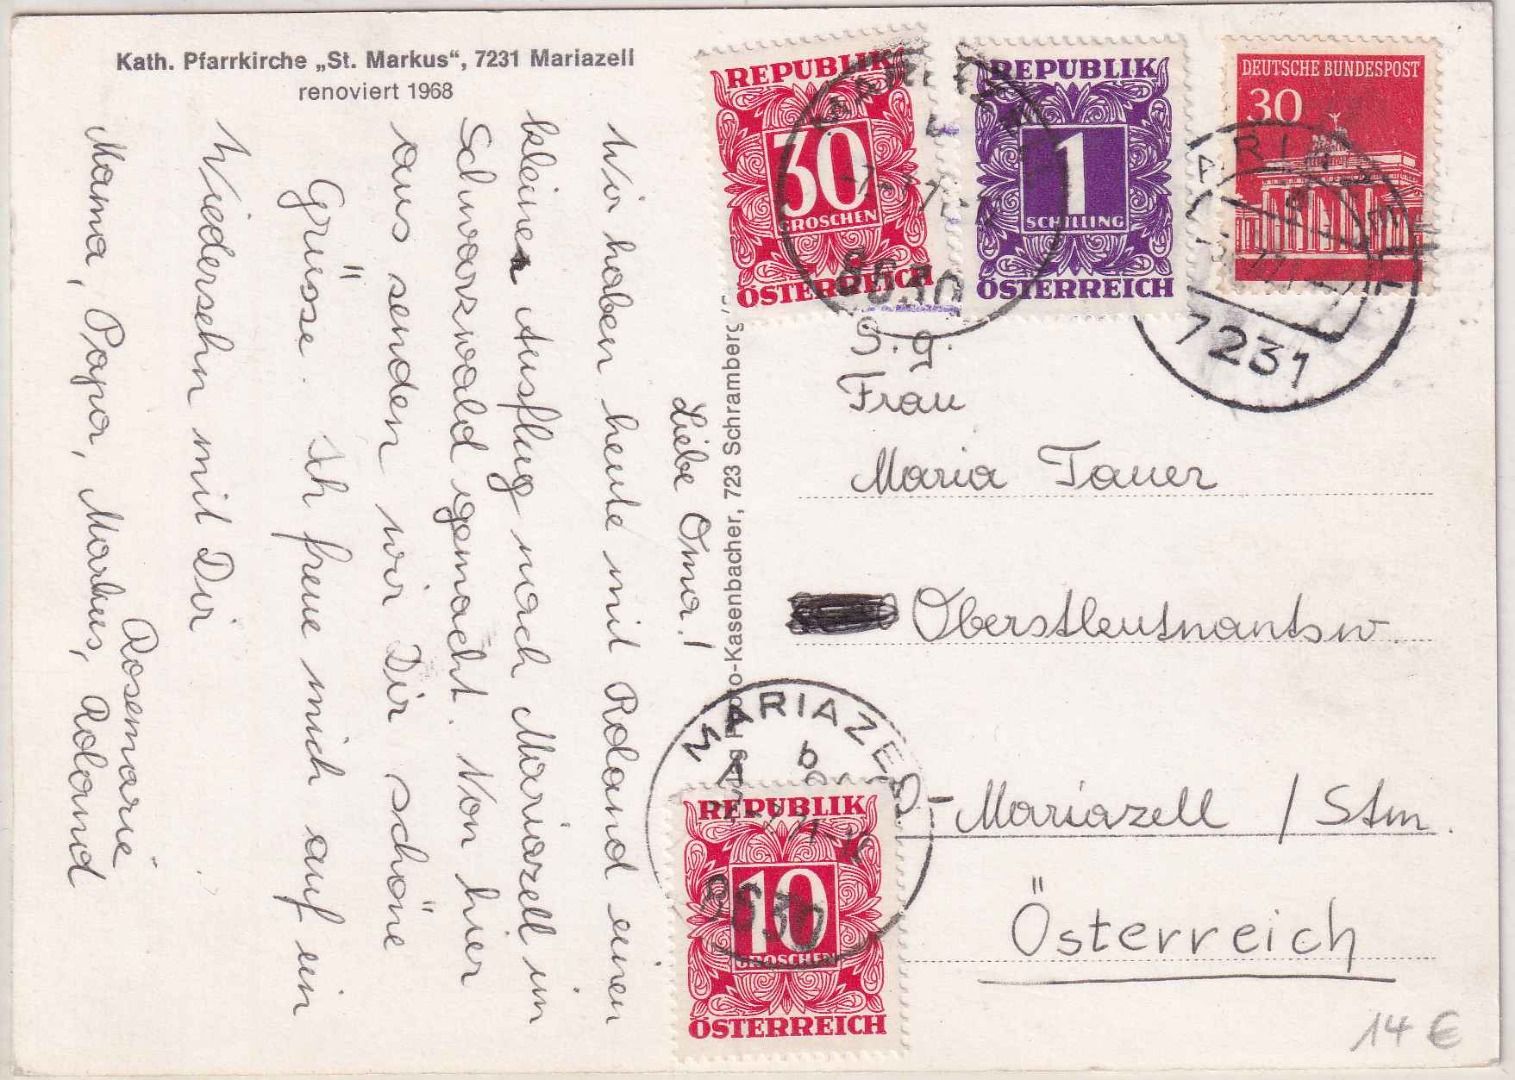 Kath. Pfarrkirche „St. Markus“, 7231 Mariazell
renoviert 1968
Liebe Oma!
Wir haben heute mit Roland einen
kleinen Ausflug nach Mariazell im
Schwarzwald gemacht. Von hier
aus senden wir Dir schöne
Grüsse. Ich freue mich auf ein
Wiedersehn mit Dir
Rosemarie
Mama, Papa, Markus, Roland
-Kasenbacher, 723 Schramberg
REPUBLIK
30
GROSCHEN
ÖSTERREICH
8630
REPUBLIK
1
SCHILLING
ÖSTERREICH
DEUTSCHE BUNDESPOST
30
MARIAZELL
7231
S. g.
Frau
Maria Tauer
Oberstleutnantsw.
-Mariazell / Stm.
Österreich
MARIAZELL
b
REPUBLIK
10
GROSCHEN
ÖSTERREICH
8630
14 €